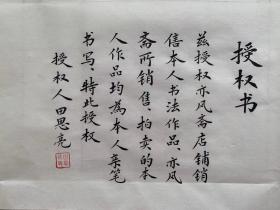 授权书
兹授权亦风斋店铺销
售本人书法作品、亦风
斋所销售、拍卖的本
人作品均为本人亲笔
书写、特此授权
授权人田思亮